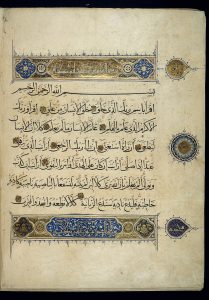 بسم الله الرحمن الرحيم
اقرأ باسم ربك الذي خلق خلق الانسان من علق اقرأ وربك
الاكرم الذي علم بالقلم علم الانسان ما لم يعلم كلا ان الانسان
ليطغى ان رآه استغنى ان الى ربك الرجعى ارأيت الذي ينهى
عبدا اذا صلى ارأيت ان كان على الهدى او امر بالتقوى ارأيت ان كذب
وتولى الم يعلم بان الله يرى كلا لئن لم ينته لنسفعا بالناصية ناصية كاذبة
خاطئة فليدع ناديه سندع الزبانية كلا لا تطعه واسجد واقترب